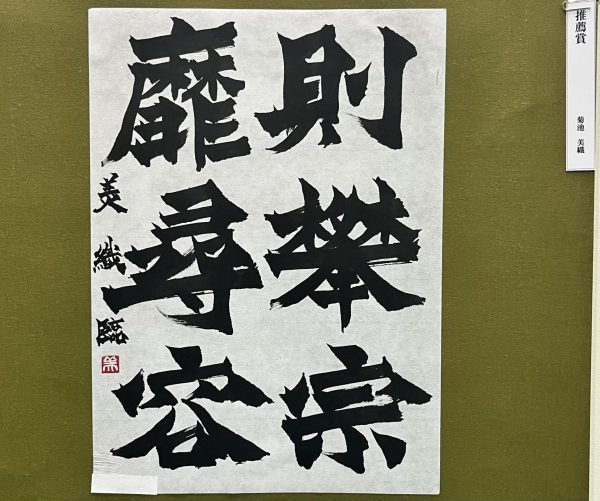 則攀宗
靡尋容
美織臨
美
推薦賞
菊池 美織